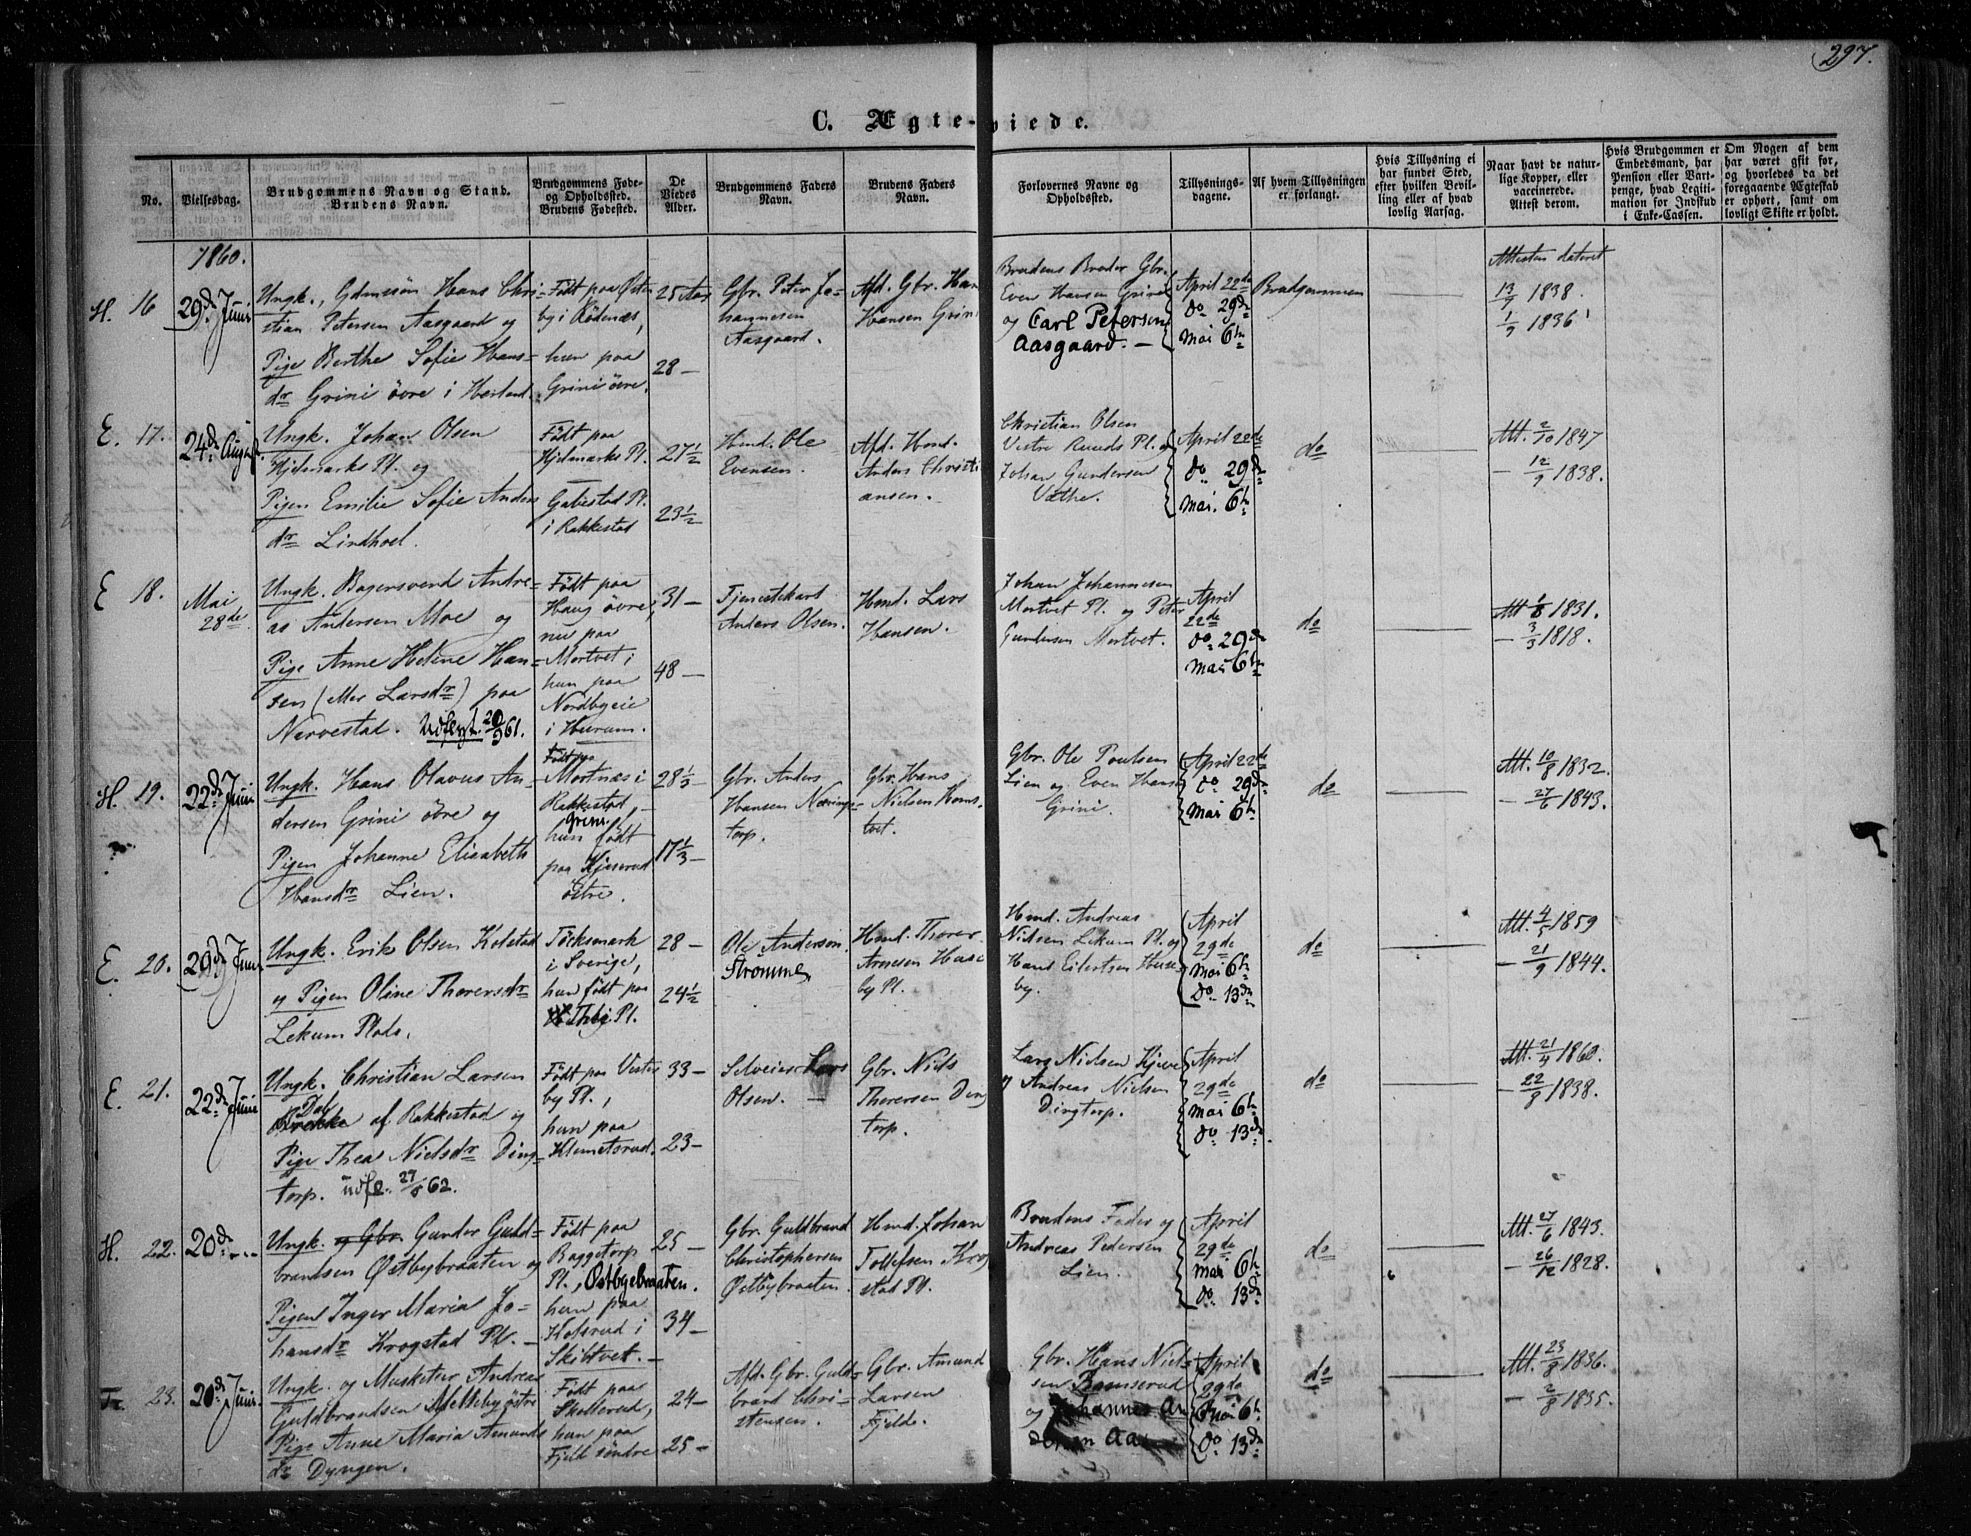 297.
C. Ægte-viede.
No.
Vielsesdag.
Brudgommens Navn og Stand.
Brudens Navn.
Brudgommens Føde-
og Opholdssted.
Brudens Fødested.
De
Viedes
Alder.
Brudgommens Faders
Navn.
Brudens Faders
Navn.
Forlovernes Navne og
Opholdssted.
Tillysnings-
dagene.
Af hvem Tillysningen
er forlangt.
Hvis Tillysning ei
har fundet Sted,
efter hvilken Bevil-
ling eller af hvad
lovlig Aarsag.
Naar havt de natur-
lige Kopper, eller
vaccinerede.
Attest derom.
Hvis Brudgommen er
Embedsmand, har
Pension eller Vart-
penge, hvad Legiti-
mation for Indskud
i Enke-Cassen.
Om Nogen af dem
har været gift før,
og hvorledes da det
foregaaende Ægteskab
er ophørt, samt om
lovligt Skifte er holdt.
1860.
H. 16
29de Juni
Ungk., Gdmssøn Hans Chri-
stian Petersen Aasgaard og
Pige Berthe Sofie Hans-
dr Grini övre i Hærland.
Født paa Østen
by i Rödenæs,
hun paa
Grini övre.
25 Aar
28 —
Gbr. Peter Jo-
hannesen
Aasgaard.
Afd. Gbr. Han
Hansen Grini
Brudens Broder Gbr.
Even Hansen Grini
og Carl Petersen
Aasgaard. —
April 22de
do 29de
Mai 6te
Brudgommen
Attesten dateret
13/9 1838.
1/9 1836
E. 17.
24de August
Ungk. Johan Olsen
Hjelmarks Pl. og
Pigen Emilie Sofie Anders
dr Lindhoel.
Født paa
Hjelmarks Pl.
Gabestad Pl.
i Rakkestad
27½
23½
Hmd. Ole
Evensen.
Afd. Hmd.
Anders Christi
ansen.
Christian Olsen
Vestre Ruuds Pl. og
Johan Gundersen
Væthe.
April 22de
do 29de
Mai. 6te
do
Att. 2/10 1847
— 12/9 1838.
E 18.
Mai
28de
Ungk. Bagersvend Andre-
as Andersen Moe og
Pige Anne Helene Han-
sen (eller Larsdr) paa
Narvestad. Udflyt. 20/9 61.
Født paa
Haug övre,
nu paa
Mortvet i
hun paa
Nordbyeie
i Hurum.
31 —
48 —
Tjenestekarl
Anders Olsen.
Hmd. Lars
Hansen.
Johan Johannesen
Mortvet Pl. og Peter
Gundersen Mortvet.
April
22de
do 29de
Mai 6te
do
Att. 1/8 1831.
— 3/3 1818.
H. 19.
22de Juni
Ungk. Hans Olavus An-
dersen Grini övre og
Pigen Johanne Elisabeth
Hansdr Lien.
Født paa
Mortnæs i
Rakkestad,
Grini.
hun født
paa Kjeserud
östre.
28⅓
17⅓ —
Gbr. Anders
Hansen Næring-
torp.
Gbr. Hans
Nielsen Homs-
tvet.
Gbr. Ole Poulsen
Lien og Even Hans
Grini.
April 22de
do 29de
Mai 6te
do
Att. 10/8 1832.
— 27/6 1843.
E. 20.
29de Juni
Ungk. Erik Olsen Kolstad
og Pigen Oline Thorersdr
Lekum Plads.
Töcksmark
i Sverige,
hun født paa
Pl.
28 —
24½
Ole Anderson
Strömme
Hmd. Thorer
Arnesen Huse
by Pl.
Hmd. Andreas
Nielsen Lekum Pl. og
Hans Eilertsen Huse
by.
April
29de
Mai 6te
do 13de
do
Att. 4/5 1859
— 21/9 1844.
E. 21.
22de Juni
Ungk. Christian Larsen
Dal
af Rakkestad og
Pige Thea Nielsdr Ding-
torp. udfl. 27/8 62.
Født paa Vestre
by Pl.,
hun paa
Klemetsrud.
33 —
23 —
Selveier Lars
Olsen. —
Gbr. Niels
Thoresen Ding
torp.
Lars Nielsen
og Andreas Nielsen
Dingtorp.
April
29de
Mai 6te
do 13de.
do
Att. 21/4 1860.
— 22/8 1838.
H. 22.
20de
Ungk. og Gbr. Gunder Guld-
brandsen Østbybraaten og
Pigen Inger Maria Jo-
hansdr Krogstad Pl. —
Født paa
Baggetorp
Pl., Østbybraaten.
hun paa
Kolsrud i
Skibtvet. —
25 —
34 —
Gbr. Guldbrand
Christophersen
Østbybraaten.
Hmd. Johan
Tollefsen Krog
stad Pl.
Brudens Fader og
Andreas Pedersen
Lien.
April
29de
Mai 6te
do 13de
do
Att. 27/6 1843.
— 26/12 1828.
Tr. 23.
20de Juni.
Ungk. og Musketer Andreas
Guldbrandsen Melleby östre
Pige Anne Maria Amunds
dr Dyngen.
Født paa
Skollerud,
hun paa
Fjeld söndre
24 —
25 —
Afd. Gbr. Guld-
brand Chri-
stensen.
Gbr. Amund
Larsen
Fjeld.
Gbr. Hans Niel-
sen Ramserud
og Johannes An
April
29de
Mai 6te
do 13de
do
Att. 23/8 1836.
— 2/8 1835.